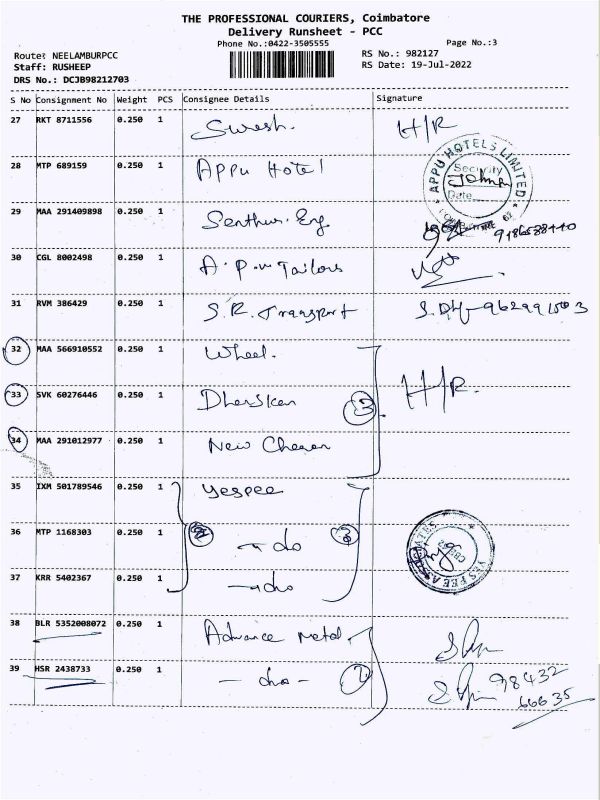 THE PROFESSIONAL COURIERS, Coimbatore
Delivery Runsheet - PCC
Phone No.:0422-3505555
Page No.:3
Route: NEELAMBURPCC
RS No.: 982127
Staff: RUSHEEP
RS Date: 19-Jul-2022
DRS No.: DCJB98212703
S No Consignment No Weight PCS Consignee Details Signature
27 RKT 8711556 0.250 1 Suresh. H/R
28 MTP 689159 0.250 1 Appu Hotel
APPU HOTELS LIMITED
Security
Date
29 MAA 291409898 0.250 1 Senthur. Eng
30 CGL 8002498 0.250 1 A.P.M Tailors
31 RVM 386429 0.250 1 S.R. Transport
32 MAA 566910552 0.250 1 Wheel.
33 SVK 60276446 0.250 1 3 H/R.
34 MAA 291012977 0.250 1 New
35 IXM 501789546 0.250 1 Yespee
36 MTP 1168303 0.250 1 - do 3
37 KRR 5402367 0.250 1 - do
38 BLR 5352008072 0.250 1 Advance metal.
39 HSR 2438733 0.250 1 - do - 2 98432
66635